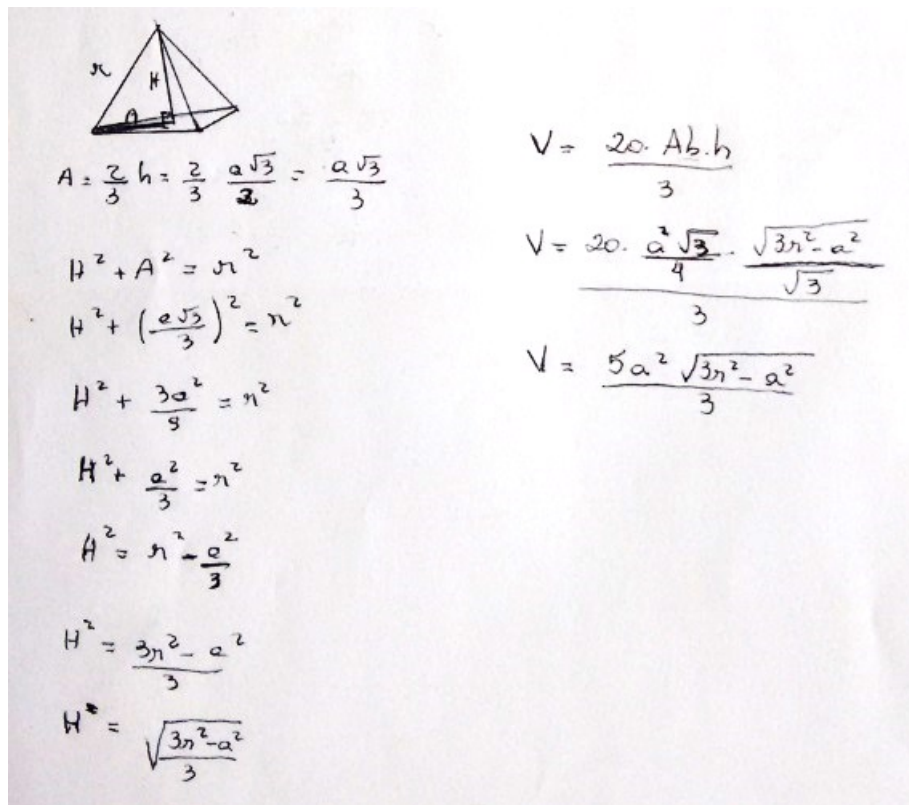 r
H
A
A = 2/3 h = 2/3 · a√3/2 = a√3/3
H² + A² = r²
H² + (a√3/3)² = r²
H² + 3a²/9 = r²
H² + a²/3 = r²
H² = r² - a²/3
H² = (3r² - a²)/3
H = √((3r² - a²)/3)
V = (20 · Ab · h)/3
V = (20 · a²√3/4 · √(3r² - a²)/√3)/3
V = (5a² √(3r² - a²))/3